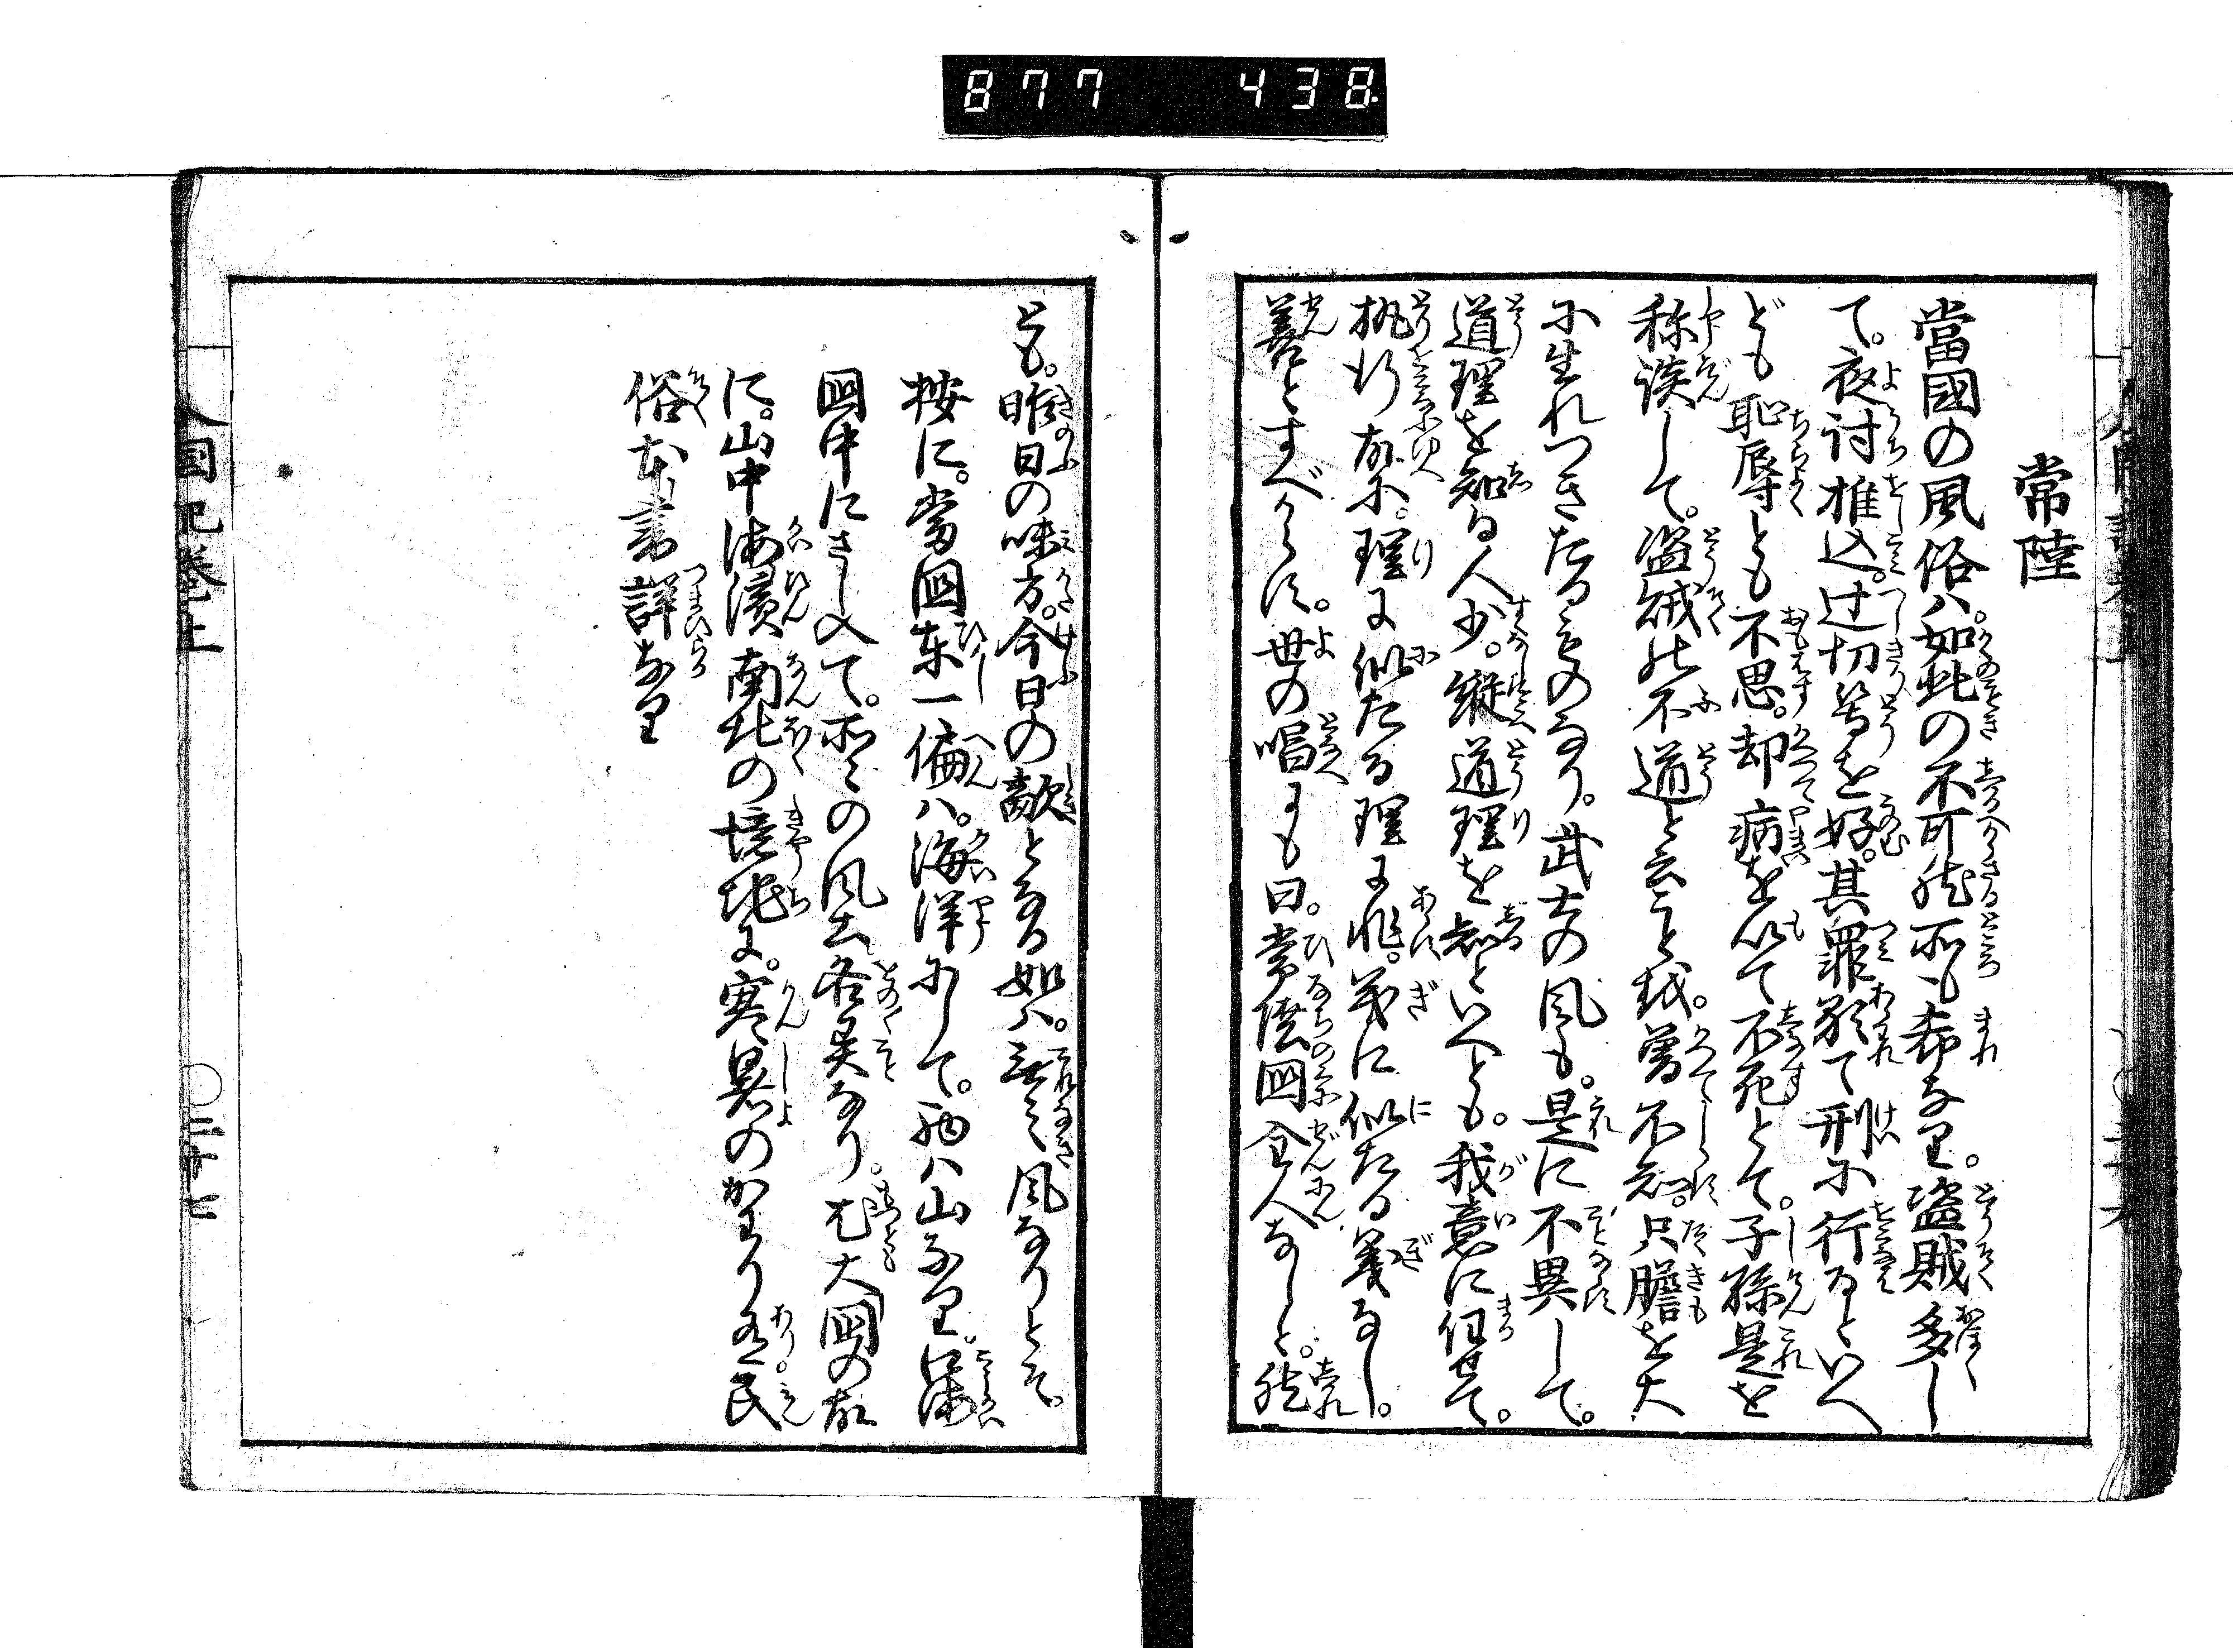 877 438
常陸
當國の風俗ハ。如此の不可然所も希なり。盗賊多し
て。夜討推込。辻切等を好。其罪顕て刑に行るといへ
ども恥辱とも不思。却病を以て不死とて。子孫是を
称談して。盗賊は不道と云こと越。曽不知。只膽を大
に生れつきたるものなり。武士の風も。是に不異して。
道理を知る人少。縦道理を知といへとも。我意に任せて。
執行故に。理に似たる理に非。義に似たる義なし。
善とすべからす。世の唱にも曰。常陸国全人なしと。然
とも。昨日の味方。今日の敵となる如ハ。無之風なりとそ。
按に。當国東一偏ハ。海洋にして。西ハ山なり。
国中にさし入て。所々の風土各異なり。尤大国の故
に。山中海濱南北の境地に。寒暑のかはり有。民
俗本書詳なり
人國記巻上
○三十七